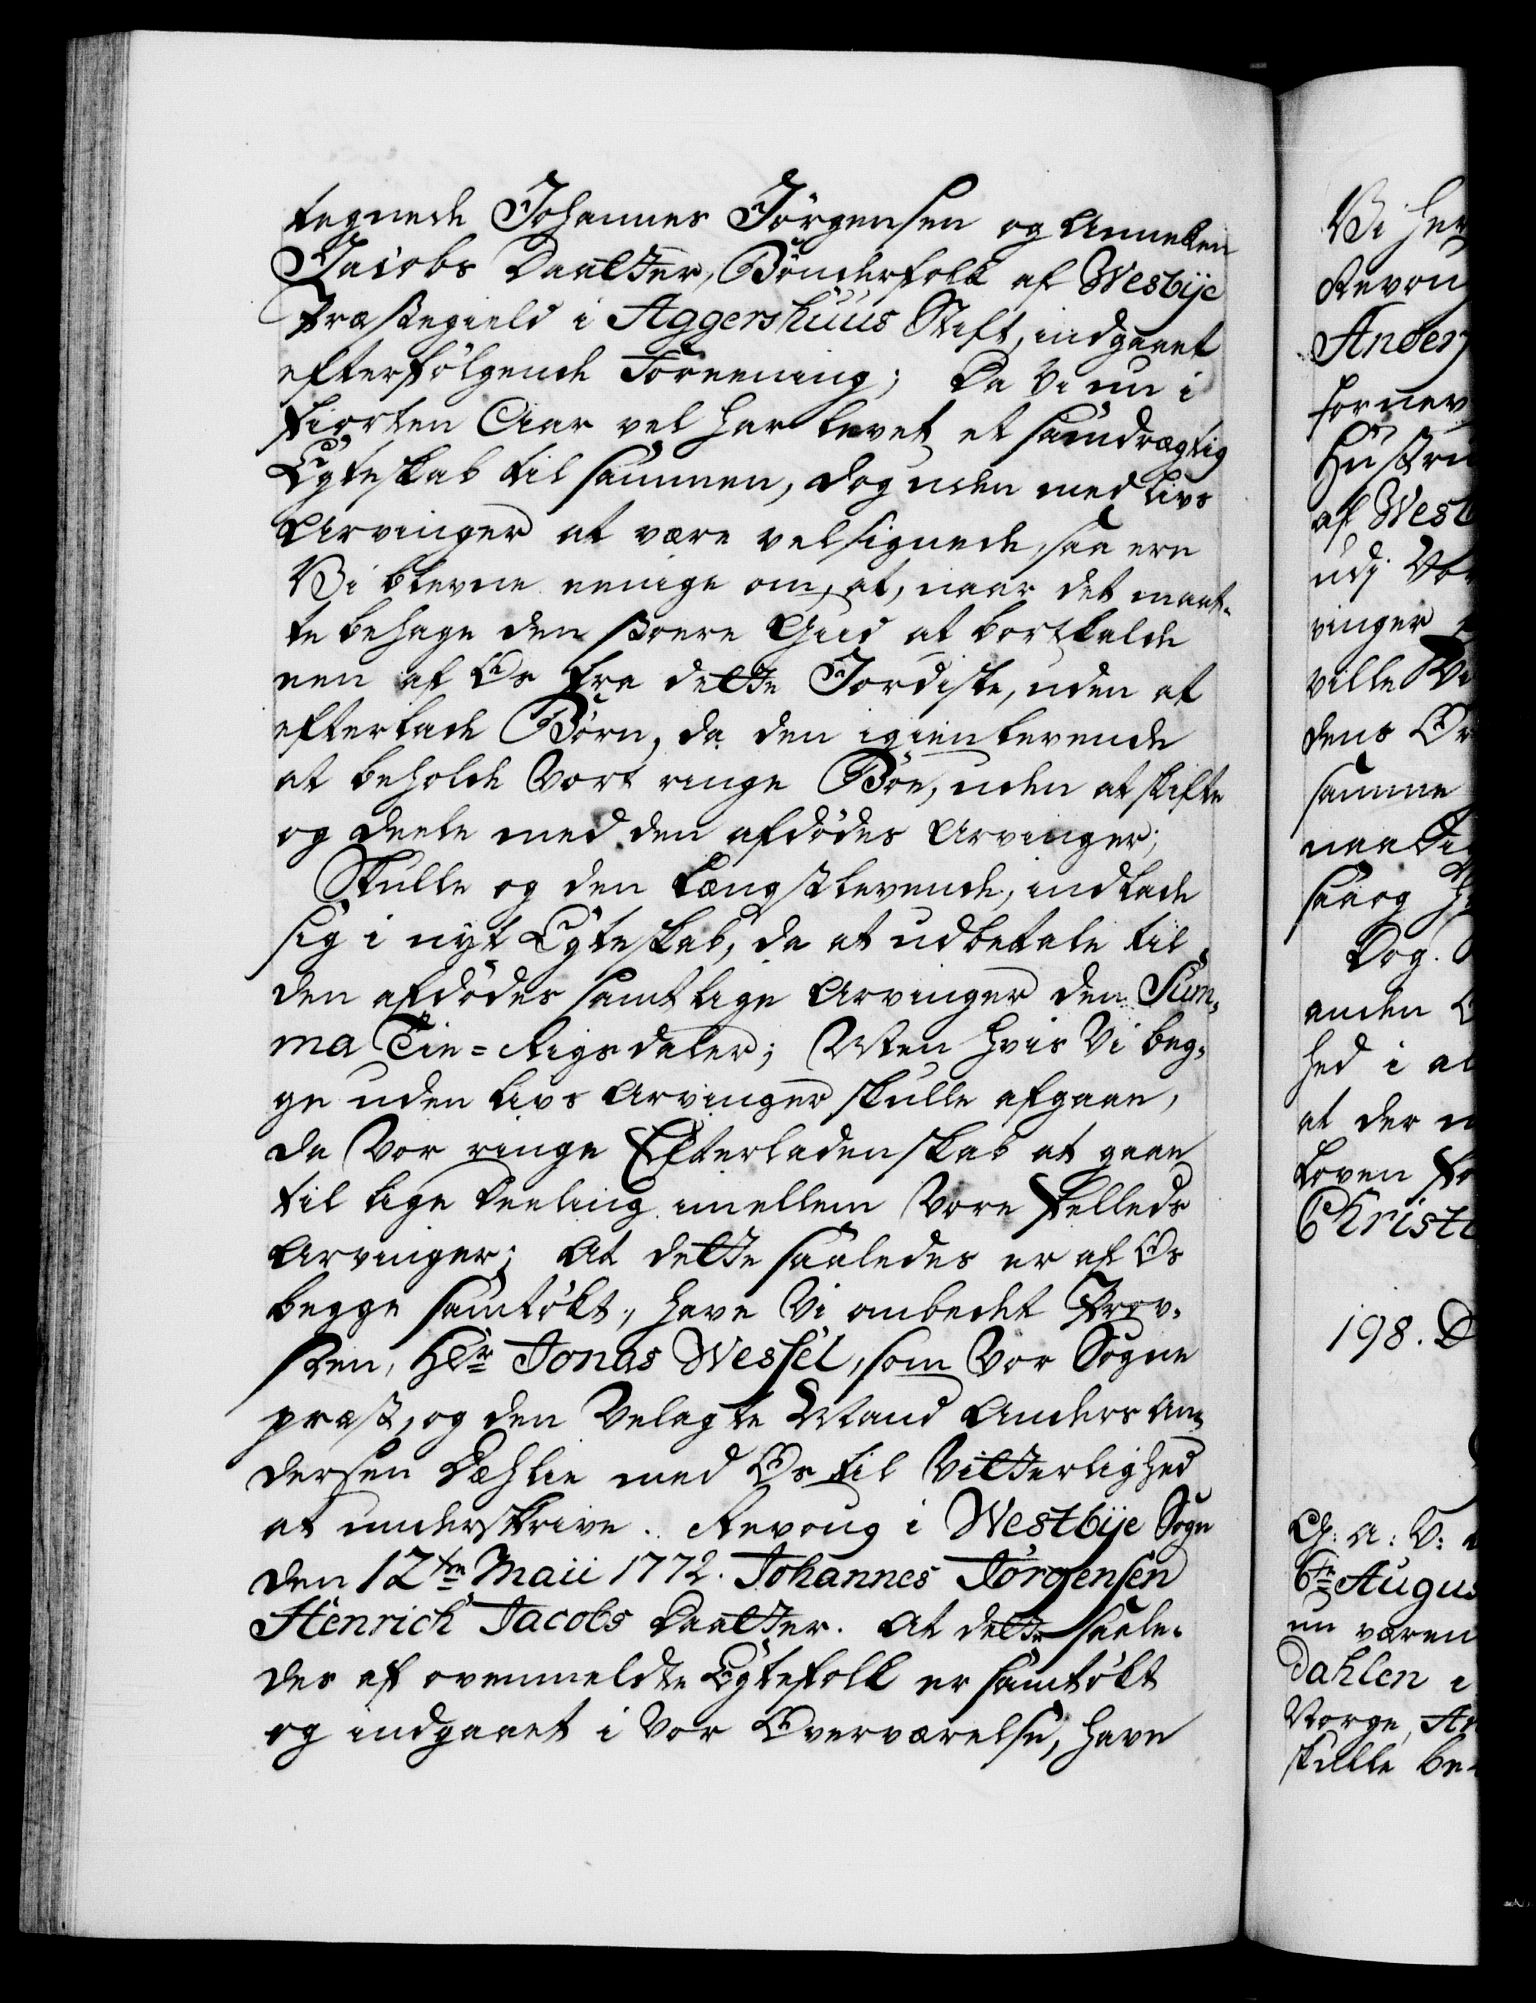 tegnede Johannes Jörgensen og Anneken
Jacobs Daatter, Bönderfolk af Wesbÿe
Præstegield i Aggershuus Stift, indgaaet
efterfölgende Foreening; Da Vi nu i
fiorten Aar vel har levet et samdrægtig
Egteskab til sammen, dog uden med Livs
Arvinger at være velsignede, saa ere
Vi blevne eenige om, at, naar det maat-
te behage den store Gud at bortkalde
een af Os fra dette Jordiske, uden at
efterlade Börn, da den igienlevende
at beholde Vort ringe Böe, uden at skifte
og deele med den afdödes Arvinger;
Skulle og den Længstlevende, indlade
sig i nyt Egteskab, da at udbetale til
den afdödes samtlige Arvinger den Sum-
ma Tie=Rigsdaler; Men hvis Vi beg-
ge uden Livs Arvinger skulle afgaae,
da Vor ringe Efterladenskab at gaae
til lige Deeling imellem Vore Felleds
Arvinger; At dette saaledes er af Os
begge samtökt, have Vi ombedet Prov-
sten, Hr Jonas Wessel, som Vor Sogne
præst, og den Velagte Mand Anders An-
dersen Dæhlie med Os til Vitterlighed
at underskrive. Revoug i Westbÿe Sogn
den 12te Maii 1772. Johannes Jörgensen
Henrich Jacobs Daatter. At dette saale-
des af ovenmeldte Egtefolk er samtökt
og indgaaet i Vor Overværelse, have
Vi
Revou
Anders
fornev
Hustru
af West
udj Vo
vinger
ville Vi
dens
samme
naadig
saa og
Dog
anden
hed i al
at der
Loven
Christi
198. D
G: A: V:
6te Augus
en væren
Dahlen i
Norge, A
skulle be